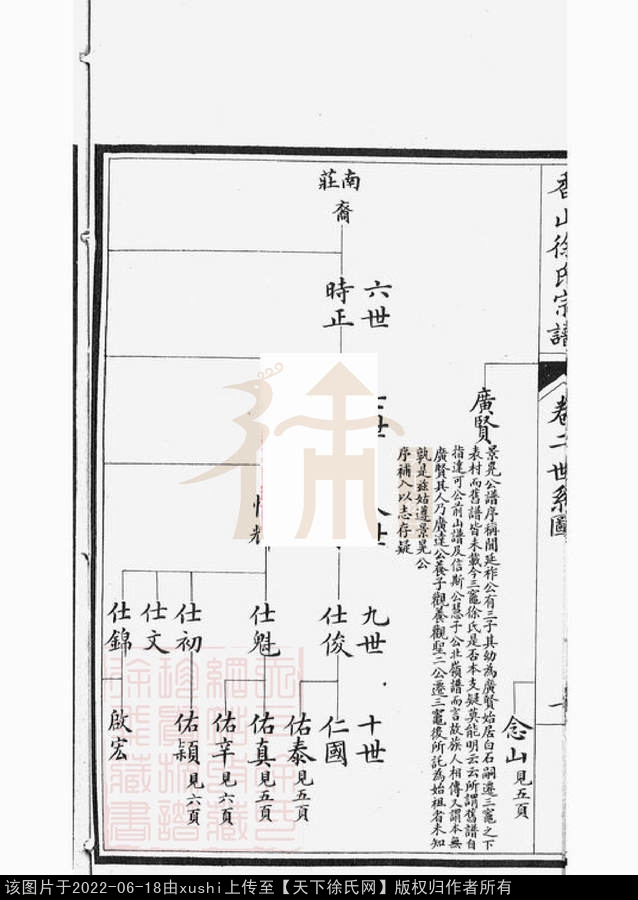 香山徐氏宗譜
卷二世系圖
念山見五頁
廣賢
景晃公譜序稱聞延祚公有三子其幼為廣賢始居白石嗣遷三竈之下
表村而舊譜皆未載今三竈徐氏是否本支疑莫能明云云所謂舊譜自
指達可公前山譜及信斯公慧子公北嶺譜而言故族人相傳又謂本無
廣賢其人乃廣達公養子觀養觀聖二公遷三竈後所託為始祖者未知
孰是茲姑遵景晃公
序補入以志存疑
六世
九世
十世
南莊
裔
時正
仕俊
仕魁
仕初
仕文
仕錦
仁國
佑泰見五頁
佑真見五頁
佑辛見六頁
佑穎見六頁
啟宏
徐
该图片于2022-06-18由xushi上传至【天下徐氏网】版权归作者所有